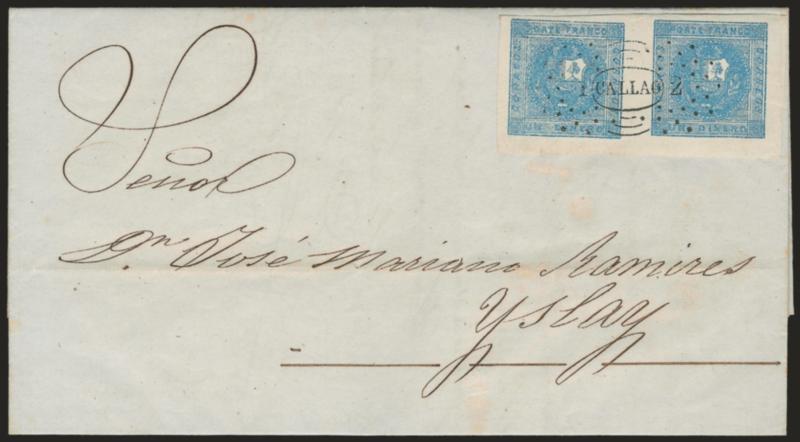 PORTE FRANCO
CORREOS
UN DINERO
PORTE FRANCO
CORREOS
UN DINERO
1 CALLAO 2
Señor
Dn José Mariano Ramires
Yslay